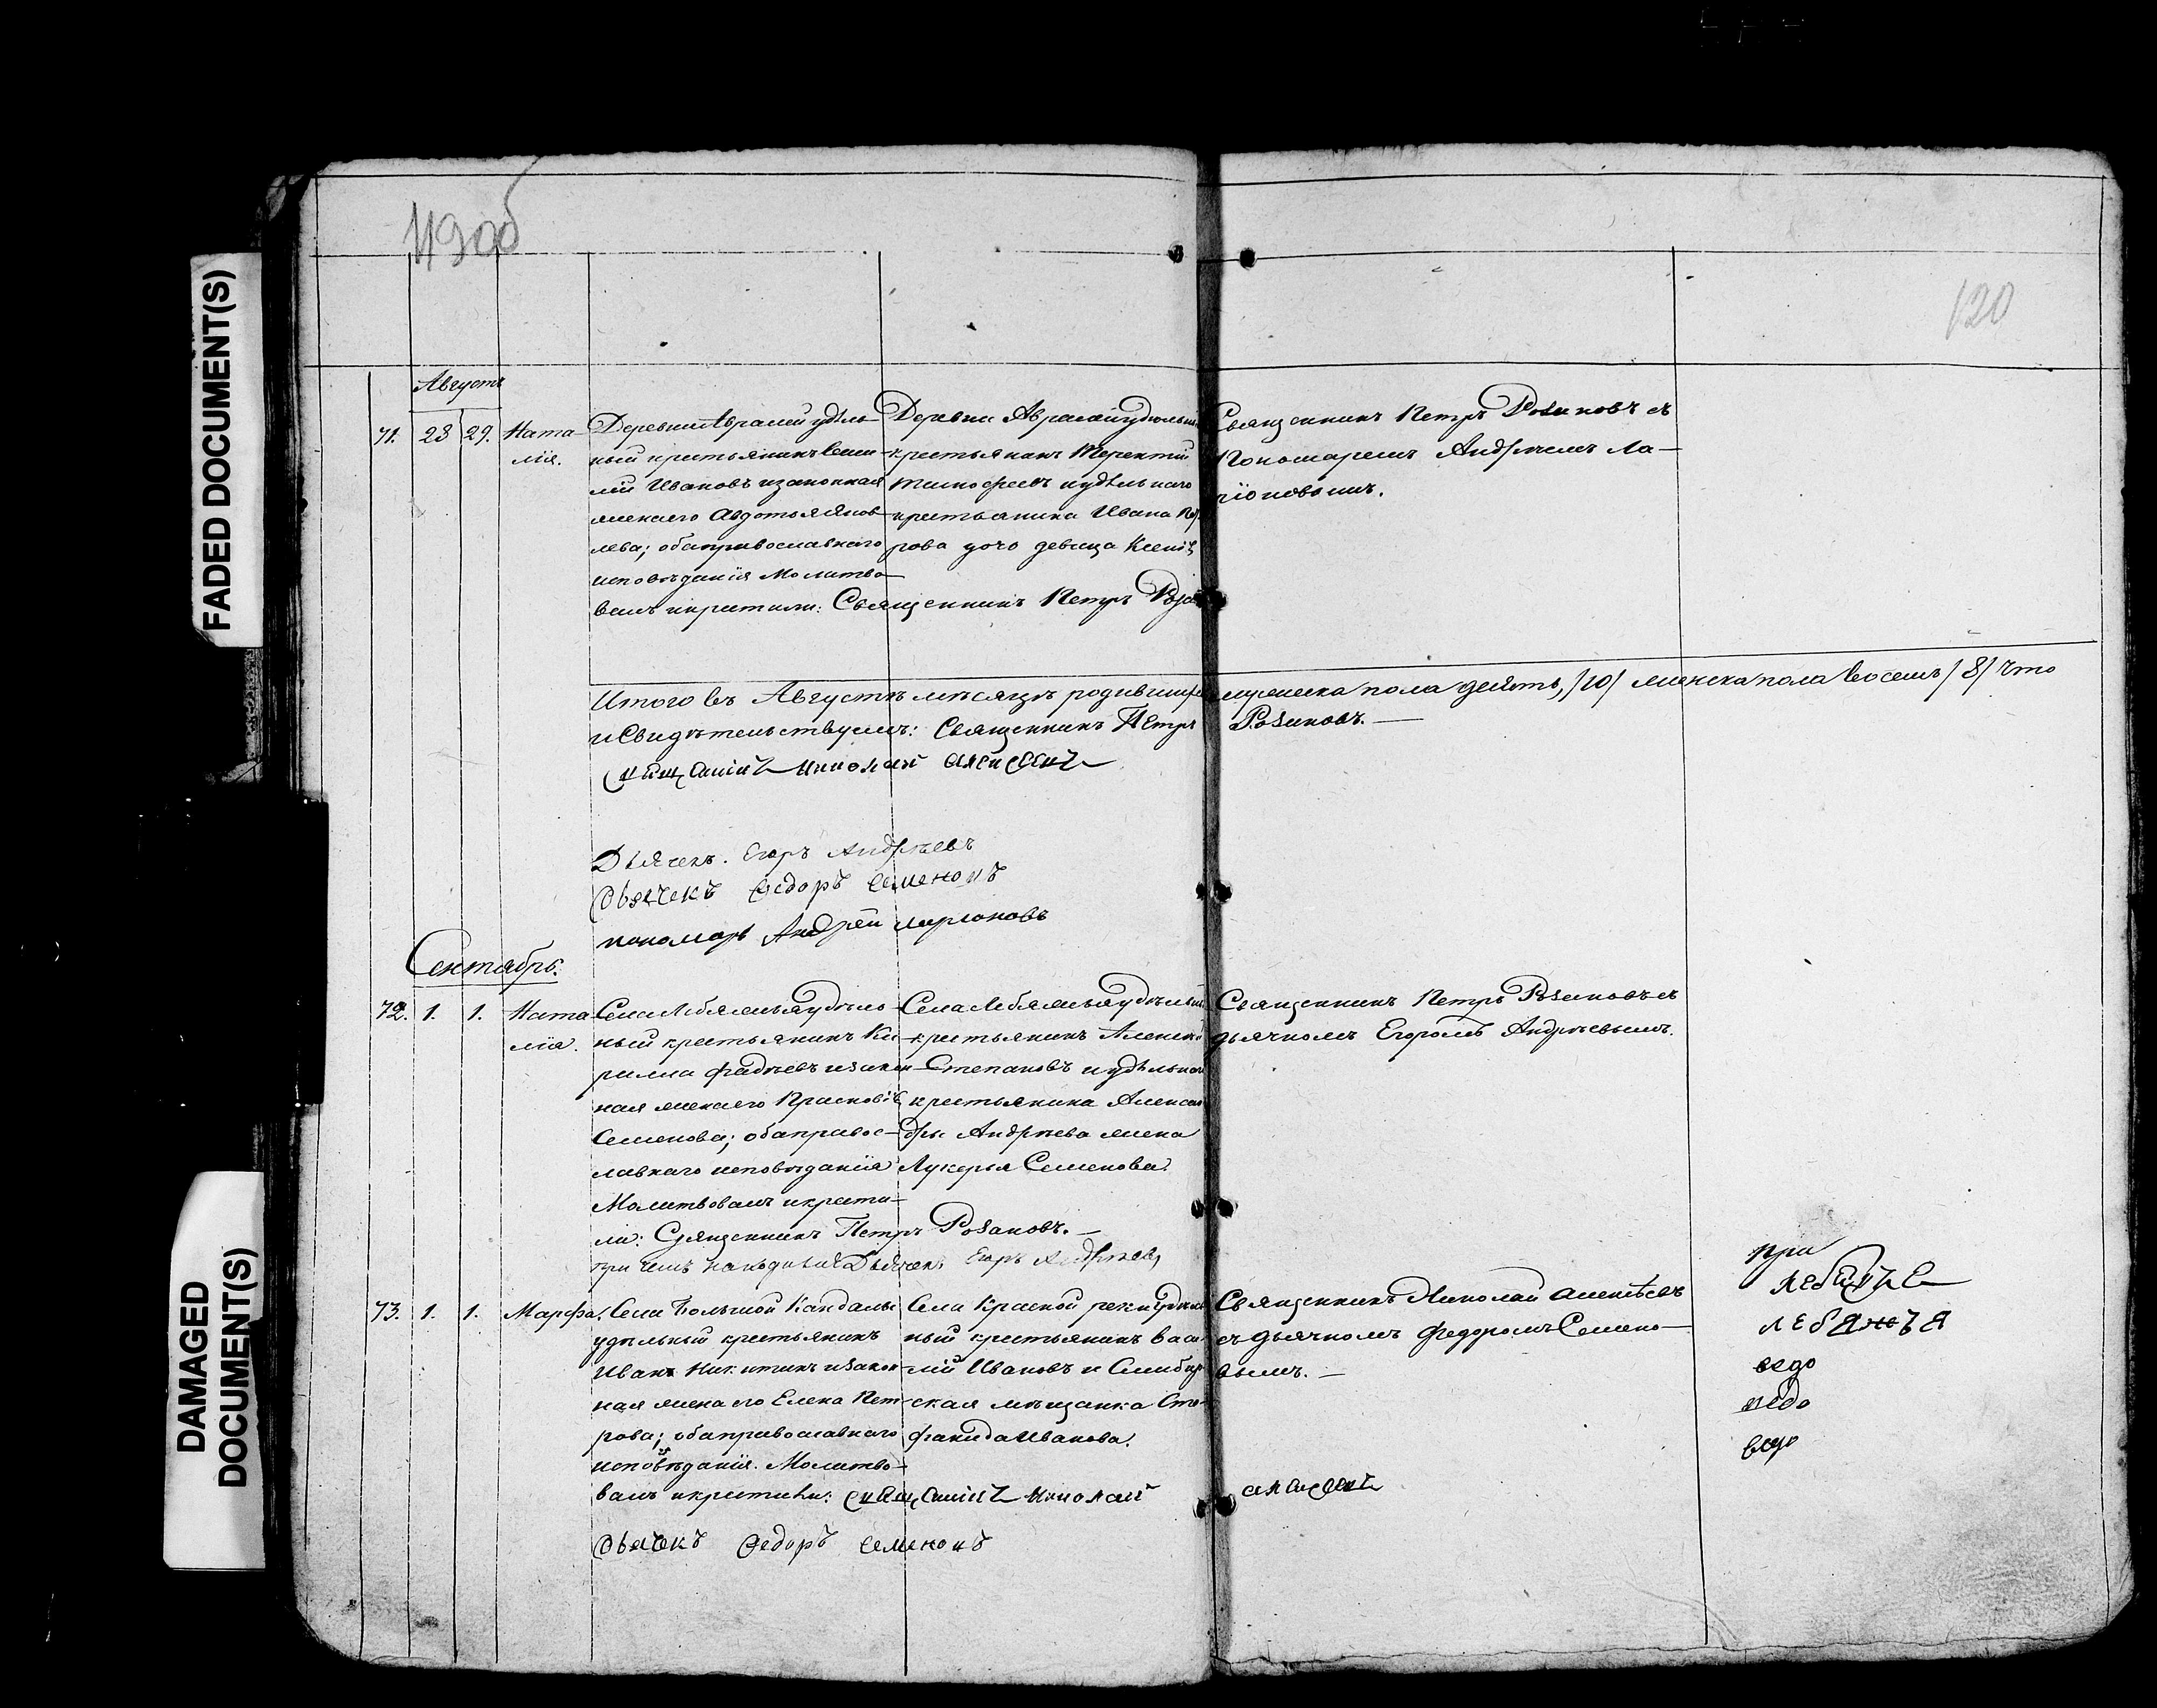 FADED DOCUMENT(S)
DAMAGED
DOCUMENT(S)
119 об
120
Августъ
71. 23 29. Ната-
лія.
Деревни Авралей удѣль-
ный крестьянинъ Васи-
лій Ивановъ и законная
жена его Авдотья Яков-
лева; оба православнаго
исповѣданія Молитво-
валъ и крестили: Священникъ Петръ Роза
Деревни Авралей удѣльный
крестьянинъ Терентій
Тимофеевъ и удѣльнаго
крестьянина Ивана
рова дочь девица Ксенія
Священникъ Петръ Розановъ съ
Пономаремъ Андреемъ Ла-
ріоновымъ.
Итого въ Августѣ мѣсяцѣ родившихся мужеска пола десять, /10/ женска пола восемь /8/ что
и Свидѣтельствуемъ: Священникъ Петръ Розановъ. —
Священникъ Николай Алексеевъ
Дьячекъ. Егоръ Андрѣевъ
Дьячекъ Федоръ Семеновъ
пономарь Андрей Ларионовъ
Сентябрь.
72. 1. 1. Ната-
лія.
Села Лебяжья удѣль-
ный крестьянинъ Ки-
рилла Фадѣевъ и закон-
ная жена его Прасковія
Семенова; оба правос-
лавнаго исповѣданія
Молитвовалъ и крести-
ли: Священникъ Петръ Розановъ. —
при чемъ находился Дьячекъ Егоръ Андрѣевъ
Села Лебяжья удѣльный
крестьянинъ Алексѣй
Степановъ и удѣльнаго
крестьянина Алексан-
дры Андрѣева жена
Лукерья Семенова.
Священникъ Петръ Розановъ съ
дьячкомъ Егоромъ Андрѣевымъ.
73. 1. 1. Марфа.
Села Большой Кандалы
удѣльный крестьянинъ
Иванъ Никитинъ и закон-
ная жена его Елена Пет-
рова; оба православнаго
исповѣданія. Молитво-
валъ и крестили: Священникъ Николай Алексеевъ
Дьячекъ Федоръ Семеновъ
Села Красной реки удѣль-
ный крестьянинъ Васи-
лій Ивановъ и Симбир-
ская мѣщанка Сте-
фанида Иванова.
Священникъ Николай Алексѣевъ
съ дьячкомъ Федоромъ Семено-
вымъ. —
при
лебяжье
лебяжья
ведо
ведо
ведо